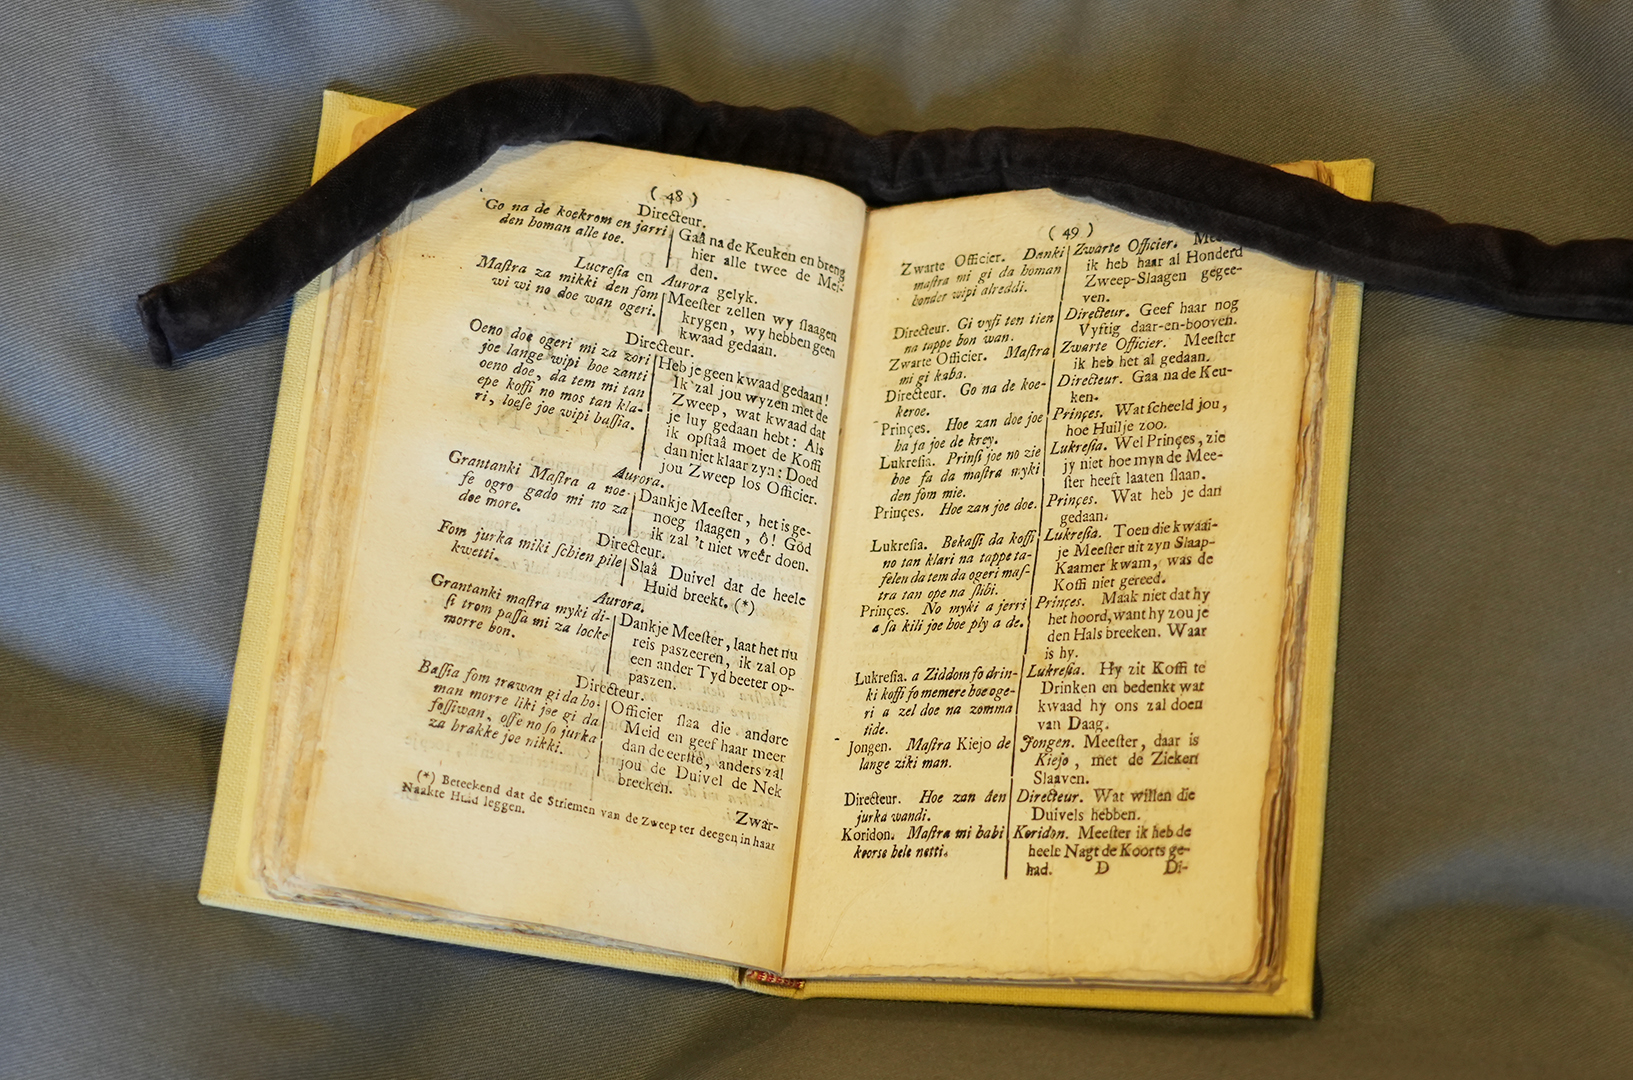 ( 48 )
Directeur.
Go na de koekrom en jarri
den homan alle toe.
Gaâ na de Keuken en breng
hier alle twee de Meî-
den.
Lucreſia en Aurora gelyk.
Maſtra za mikki den ſom
wi wi no doe wan ogeri.
Meeſter zellen wy ſlaagen
krygen, wy hebben geen
kwaad gedaan.
Directeur.
Oeno doe ogeri mi za zori
joe lange wipi hoe zanti
oeno doe, da tem mi tan
epe koffi no mos tan kla-
ri, loeſe joe wipi baſſia.
Heb je geen kwaad gedaan!
Ik zal jou wyzen met de
Zweep, wat kwaad dat
je luy gedaan hebt: Als
ik opſtaâ moet de Koffi
dan niet klaar zyn: Doed
jou Zweep los Officier.
Aurora.
Grantanki Maſtra a noe-
ſe ogro gado mi no za
doe more.
Dankje Meeſter, het is ge-
noeg ſlaagen, ô! God
ik zal 't niet weêr doen.
Directeur.
Fom jurka miki ſchien pile
kwetti.
Slaâ Duivel dat de heele
Huid breekt. (*)
Aurora.
Grantanki maſtra myki di-
ſi trom paſſa mi za locke
morre bon.
Dankje Meeſter, laat het nu
reis paszeeren, ik zal op
een ander Tyd beeter op-
paszen.
Directeur.
Baſſia ſom trawan gi da ho-
man morre liki joe gi da
foſſiwan, oſſe no ſo jurka
za brakke joe nikki.
Officier ſlaa die andere
Meid en geef haar meer
dan de eerſte, anders zal
jou de Duivel de Nek
breeken.
(*) Beteekend dat de Striemen van de Zweep ter deegen in haar
Naakte Huid leggen.
Zwar-
( 49 )
Zwarte Officier. Danki
maſtra mi gi da homan
honder wipi alreddi.
Directeur. Gi vyfi ten tien
na tappe bon wan.
Zwarte Officier. Maſtra
mi gi kaba.
Directeur. Go na de koe-
keroe.
Prinçes. Hoe zan doe joe
ha ja joe de krey.
Lukreſia. Prinſi joe no zie
hoe fa da maſtra myki
den ſom mie.
Prinçes. Hoe zan joe doe.
Lukreſia. Bekaſſi da koffi
no tan klari na tappe ta-
felen da tem da ogeri maſ-
tra tan ope na ſlibi.
Prinçes. No myki a jerri
a ſa kili joe hoe ply a de.
Lukreſia. a Ziddom ſo drin-
ki koffi ſo memere hoe oge-
ri a zel doe na zomma
tide.
Jongen. Maſtra Kiejo de
lange ziki man.
Directeur. Hoe zan den
jurka wandi.
Koridon. Maſtra mi habi
keorse hele netti.
Zwarte Officier.
ik heb haar al Honderd
Zweep-Slaagen gegee-
ven.
Directeur. Geef haar nog
Vyftig daar-en-booven.
Zwarte Officier. Meeſter
ik heb het al gedaan.
Directeur. Gaa na de Keu-
ken.
Prinçes. Wat ſcheeld jou,
hoe Huilje zoo.
Lukreſia. Wel Prinçes, zie
jy niet hoe myn de Mee-
ſter heeft laaten ſlaan.
Prinçes. Wat heb je dan
gedaan.
Lukreſia. Toen die kwaai-
je Meeſter uit zyn Slaap-
Kaamer kwam, was de
Koffi niet gereed.
Prinçes. Maak niet dat hy
het hoord, want hy zou je
den Hals breeken. Waar
is hy.
Lukreſia. Hy zit Koffi te
Drinken en bedenkt wat
kwaad hy ons zal doen
van Daag.
Jongen. Meeſter, daar is
Kiejo, met de Zieken
Slaaven.
Directeur. Wat willen die
Duivels hebben.
Koridon. Meeſter ik heb de
heele Nagt de Koorts ge-
had. D Di-